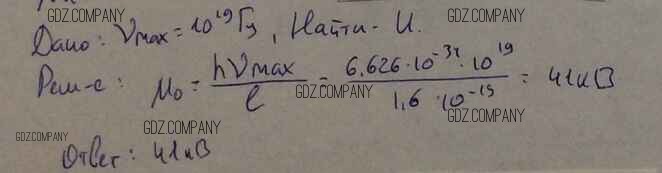 GDZ.COMPANY GDZ.COMPANY
Дано: νmax = 10¹⁹ Гц, Найти - U.
Реш-е: U₀ = hνmax / e = 6,626·10⁻³⁴·10¹⁹ / 1,6·10⁻¹⁹ = 41кВ
GDZ.COMPANY GDZ.COMPANY
GDZ.COMPANY GDZ.COMPANY
Ответ: 41кВ